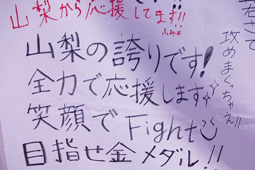 山梨から応援してます!!
ふみや
山梨の誇りです!
全力で応援します
笑顔でFight
目指せ金メダル!!
攻めまくっちゃえ!!